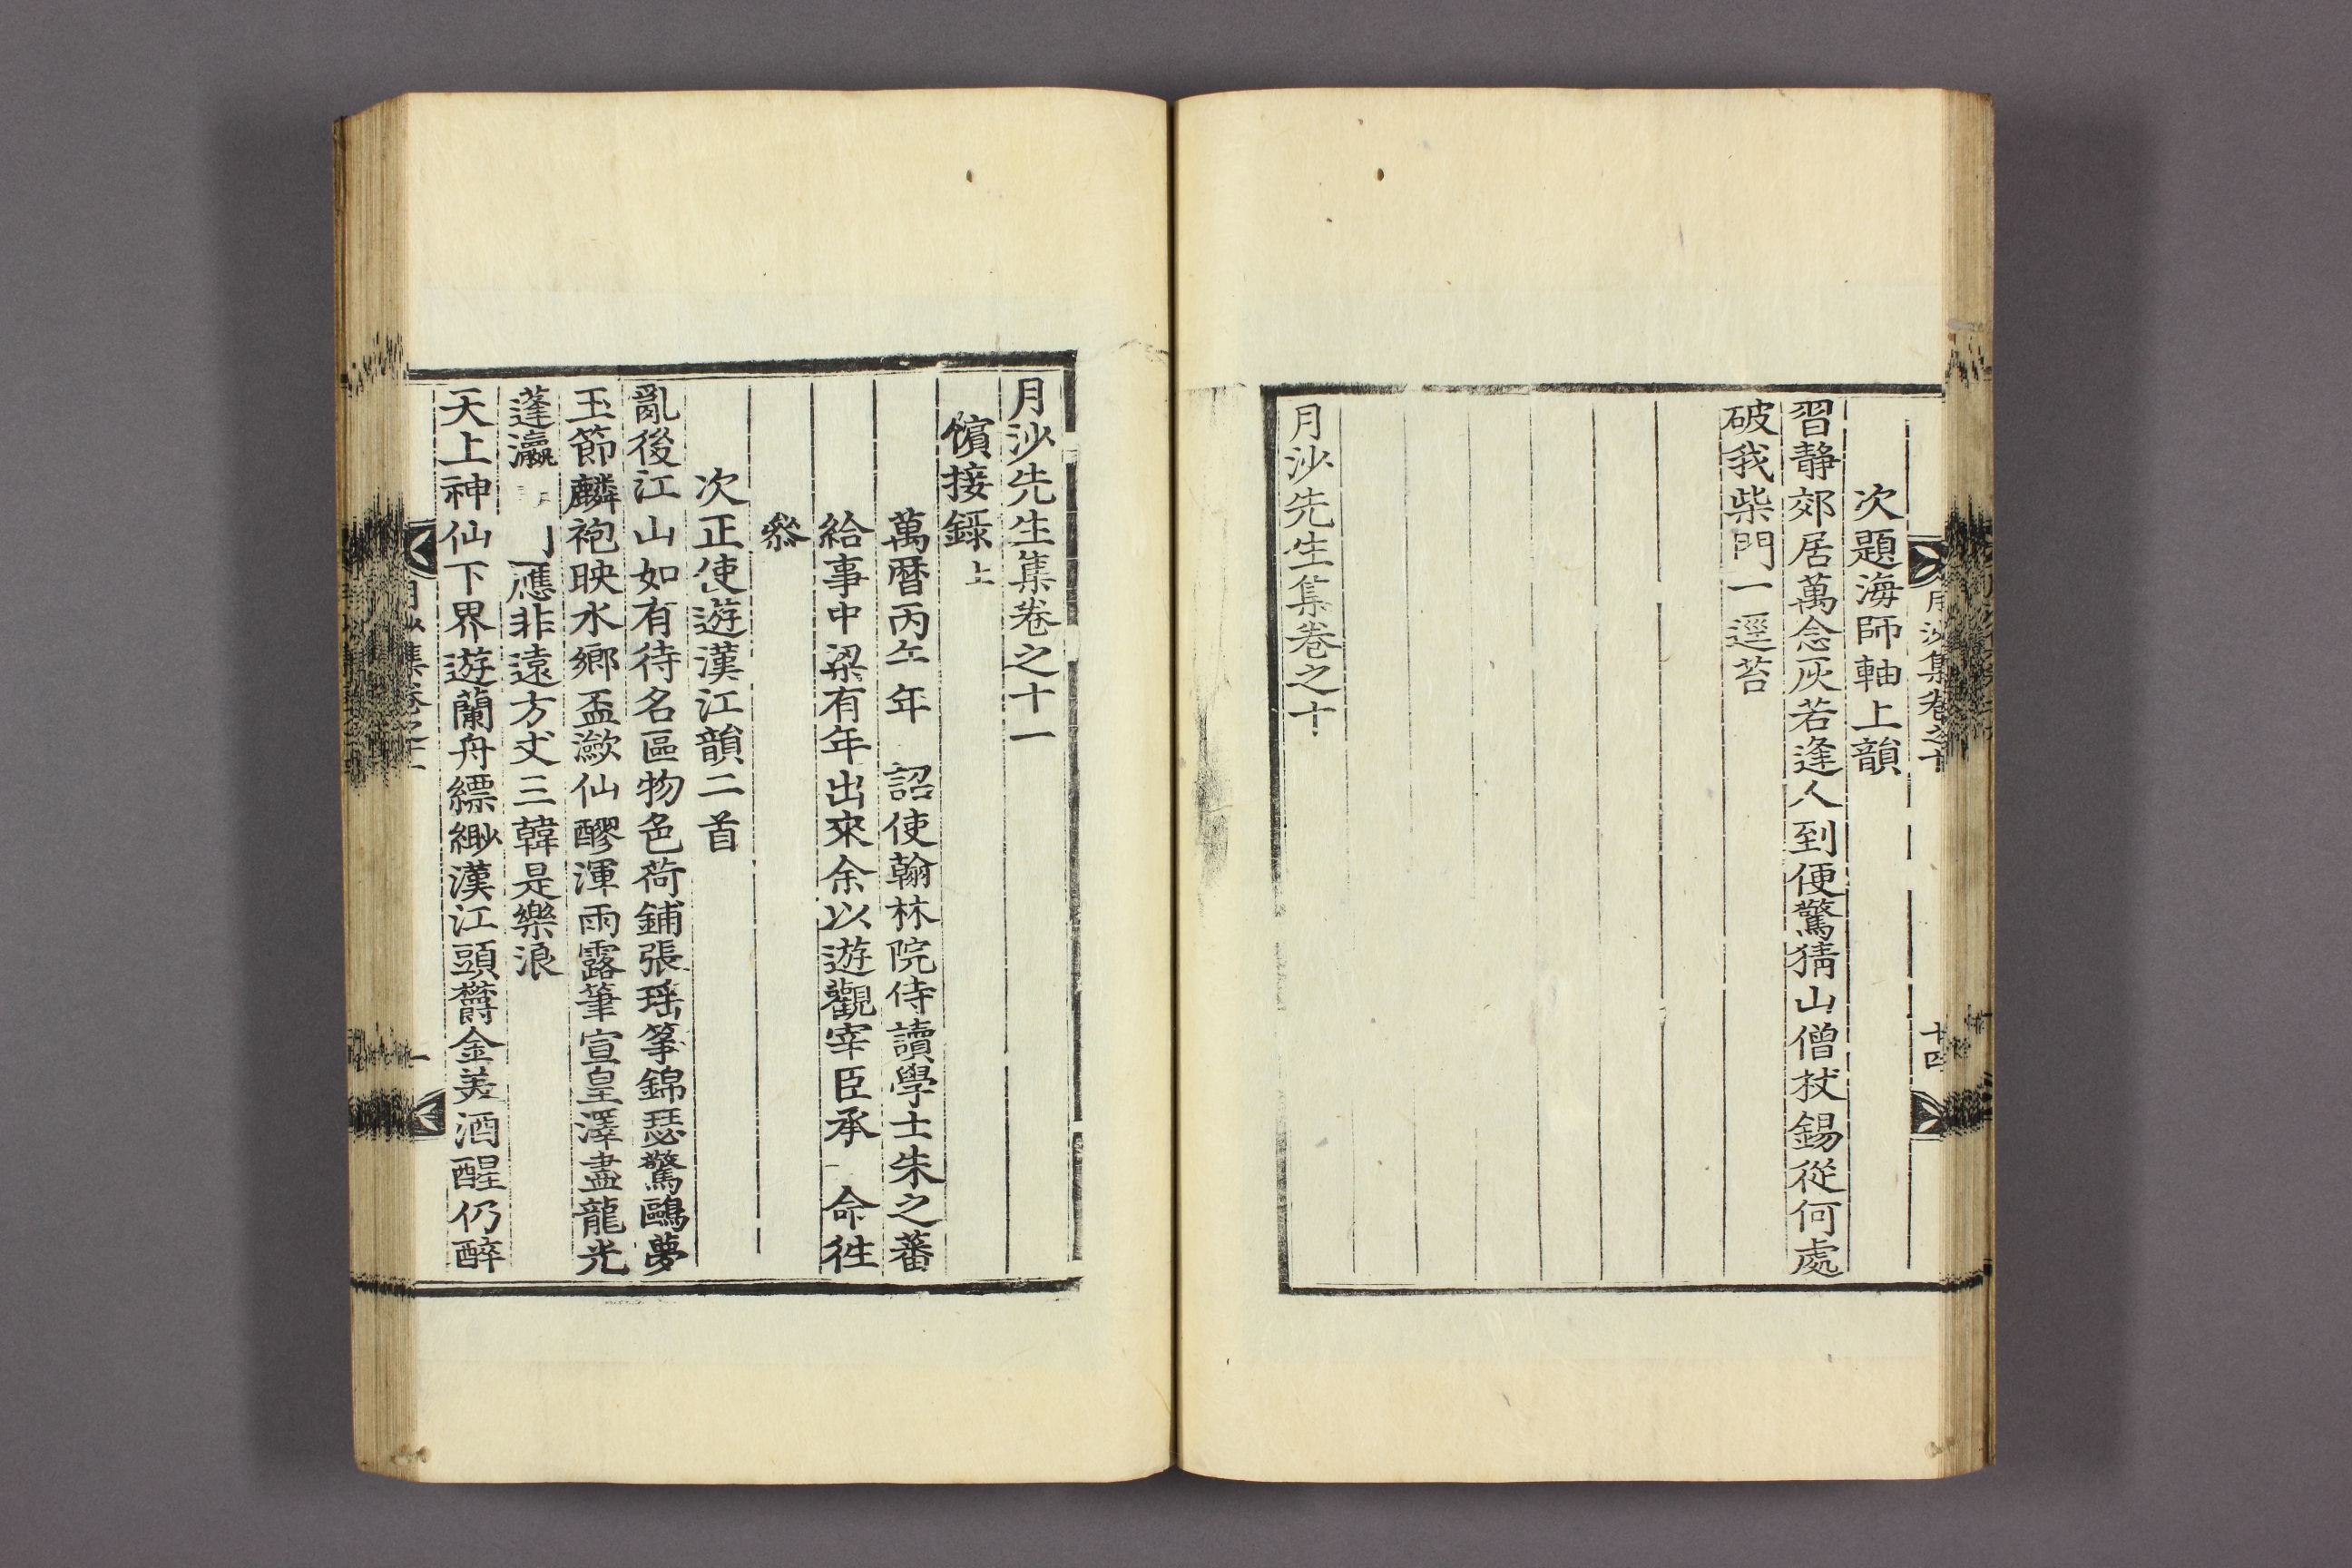 月沙集卷之十
十四
次題海師軸上韻
習靜郊居萬念灰若逢人到便驚猜山僧杖錫從何處
破我柴門一逕苔
月沙先生集卷之十
月沙先生集卷之十一
儐接錄上
萬曆丙午年 詔使翰林院侍讀學士朱之蕃
給事中梁有年出來余以遊觀宰臣承 命往
叅
次正使遊漢江韻二首
亂後江山如有待名區物色荷鋪張瑤箏錦瑟驚鷗夢
玉節麟袍映水鄉盃瀲仙醪渾雨露筆宣皇澤盡龍光
蓬瀛 應非遠方丈三韓是樂浪
天上神仙下界遊蘭舟縹緲漢江頭欎金美酒醒仍醉
月沙集卷之十一
一